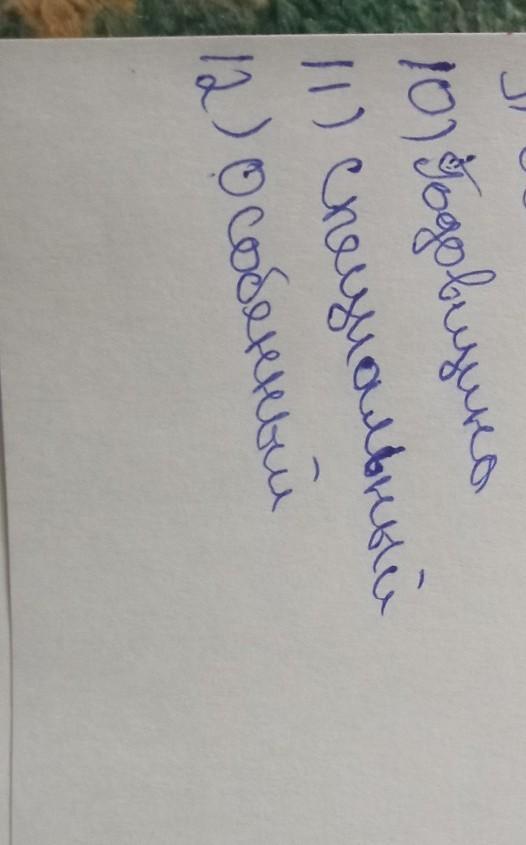 10) Годовщина
11) специальный
12) особенный